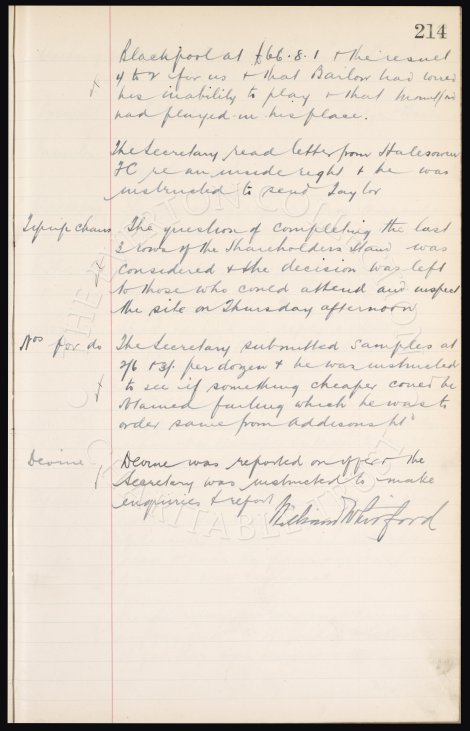 214
Blackpool at £66.8.1 & the result
4 to 2 for us & that Barlow had wired
his inability to play & that Mountford
had played in his place.
The Secretary read letter from Halesowen
FC re an inside right & he was
instructed to send Taylor
Tip up chairs The question of completing the last
3 rows of the Shareholders Stand was
considered & the decision was left
to those who could attend and inspect
the site on Thursday afternoon
Nos for do The Secretary submitted samples at
2/6 & 3/- per dozen & he was instructed
to see if something cheaper could be
obtained failing which he was to
order same from Addisons Ltd
Devine Devine was reported on offer & the
Secretary was instructed to make
enquiries & report
THE EVERTON COLLECTION
CHARITABLE TRUST